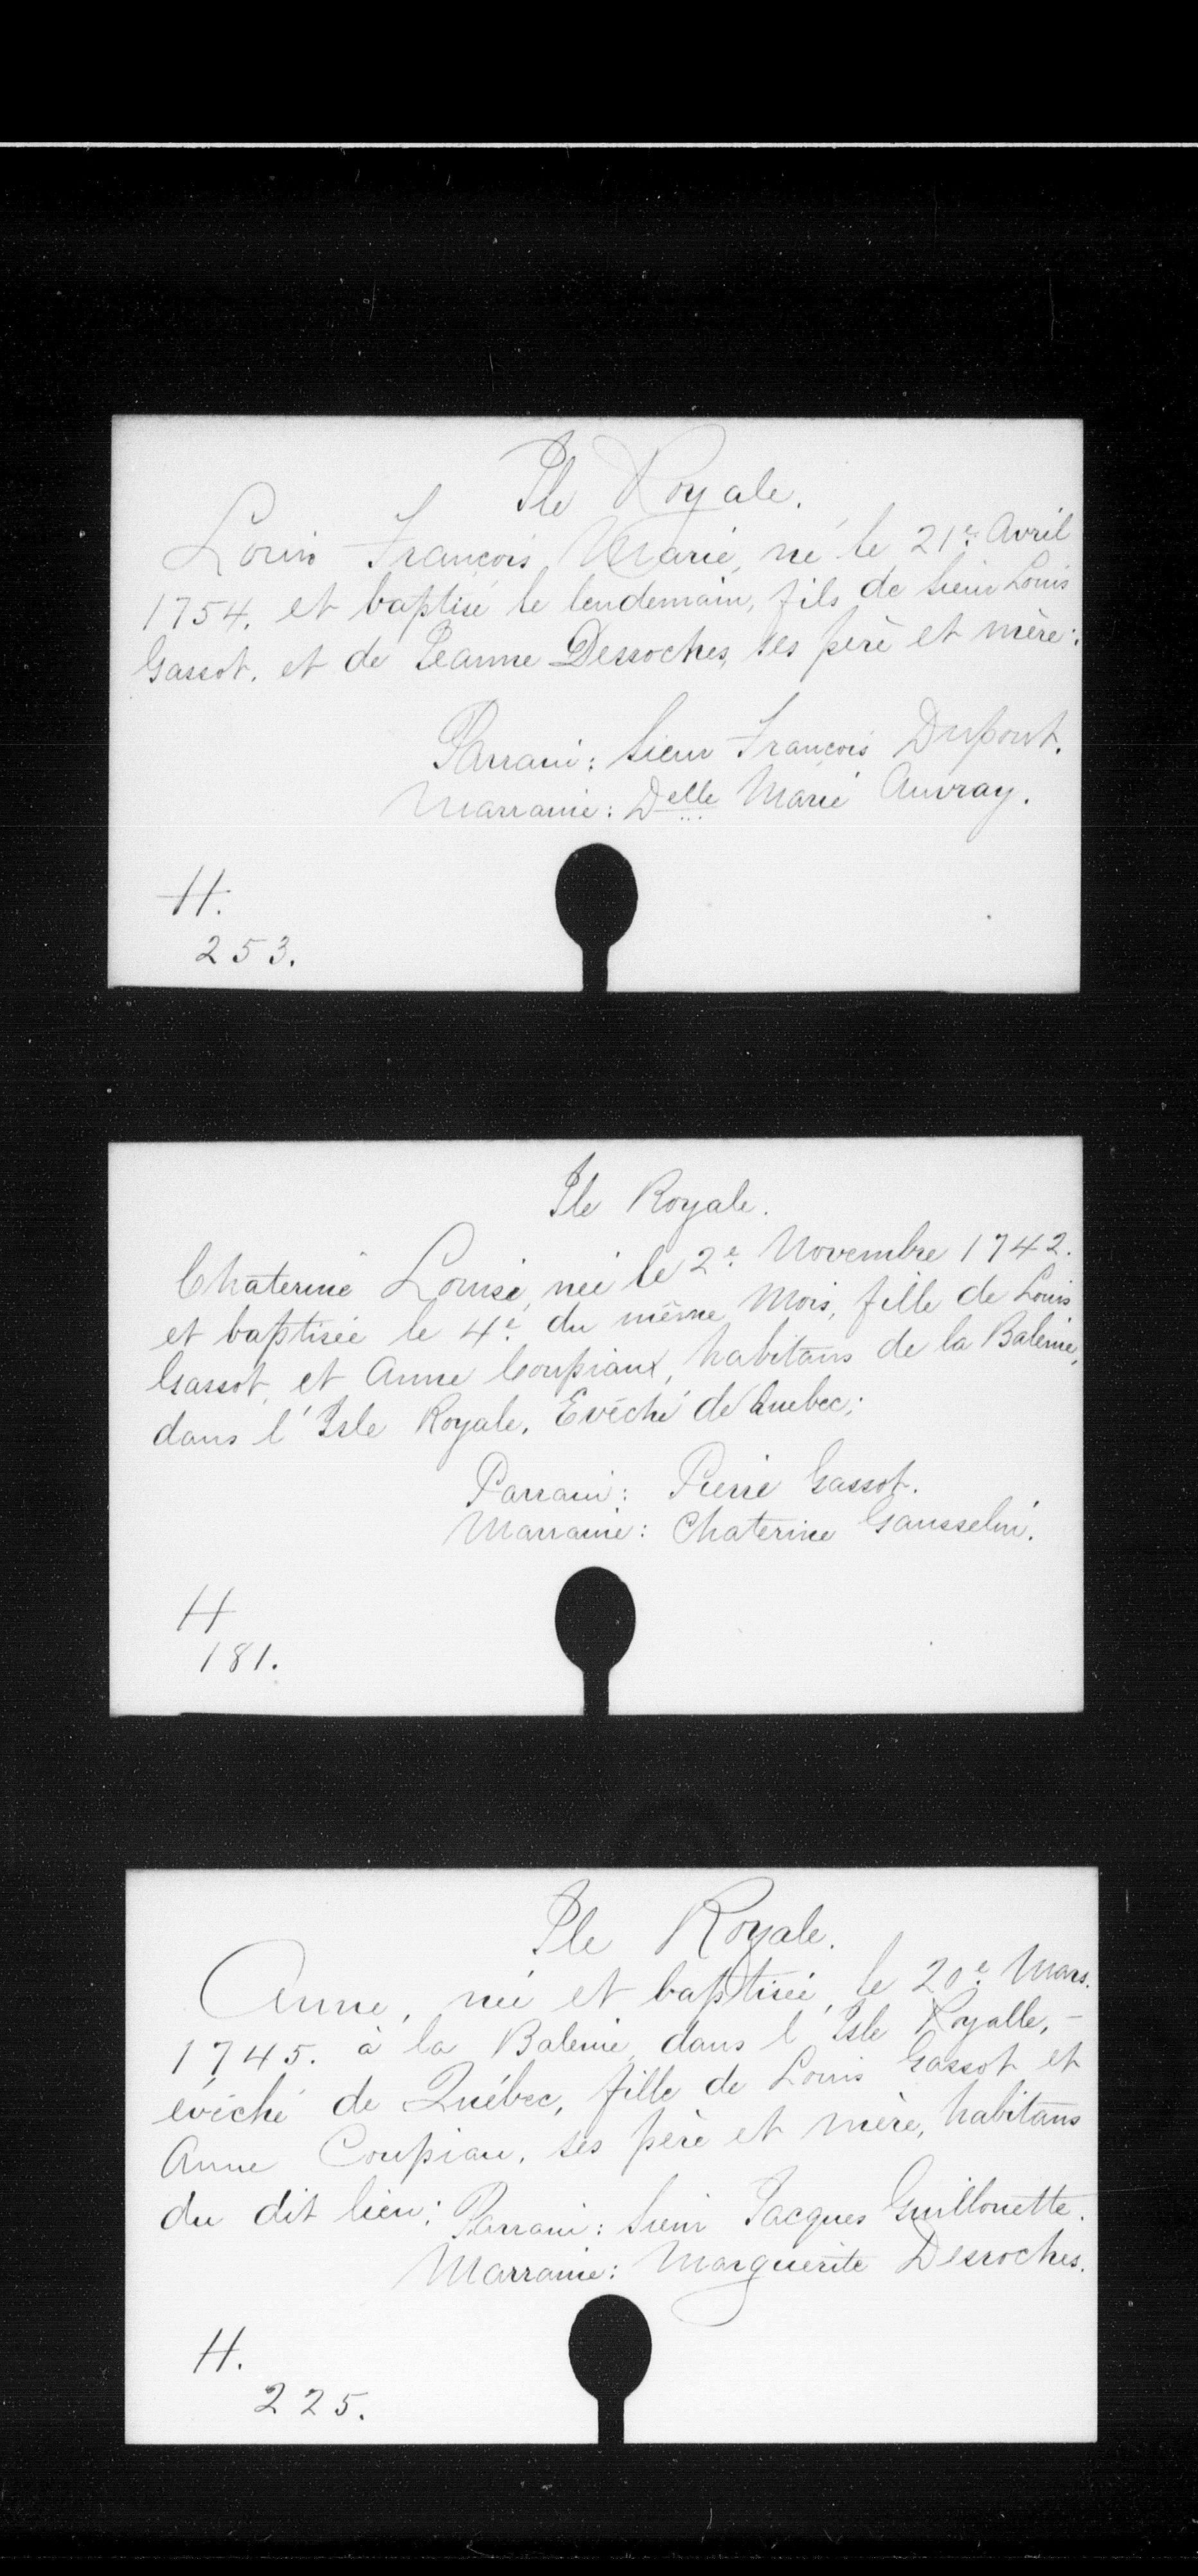 Ile Royale.
Louis François Marie, né le 21e Avril
1754. et baptisé le lendemain, fils de Sieur Louis
Gassot, et de Jeanne Desroches, ses père et mère:
Parrain: Sieur François Dupont.
Marraine: Delle Marie Auvray.
H.
253.
Ile Royale.
Chaterine Louise, née le 2e Novembre 1742.
et baptisée le 4e du même Mois, fille de Louis
Gassot, et Anne Coupiaux, habitans de la Baleine,
dans l'Isle Royale, Evêché de Quebec;
Parrain: Pierre Gassot.
Marraine: Chaterine Gausselin.
H
181.
Ile Royale.
Anne, née et baptisée, le 20e Mars.
1745. à la Baleine, dans l'Isle Royalle, -
évêché de Québec, fille de Louis Gassot et
Anne Coupiau, ses père et mère, habitans
du dit lieu; Parrain: Sieur Jacques Guillouette.
Marraine: Marguerite Desroches.
H.
225.